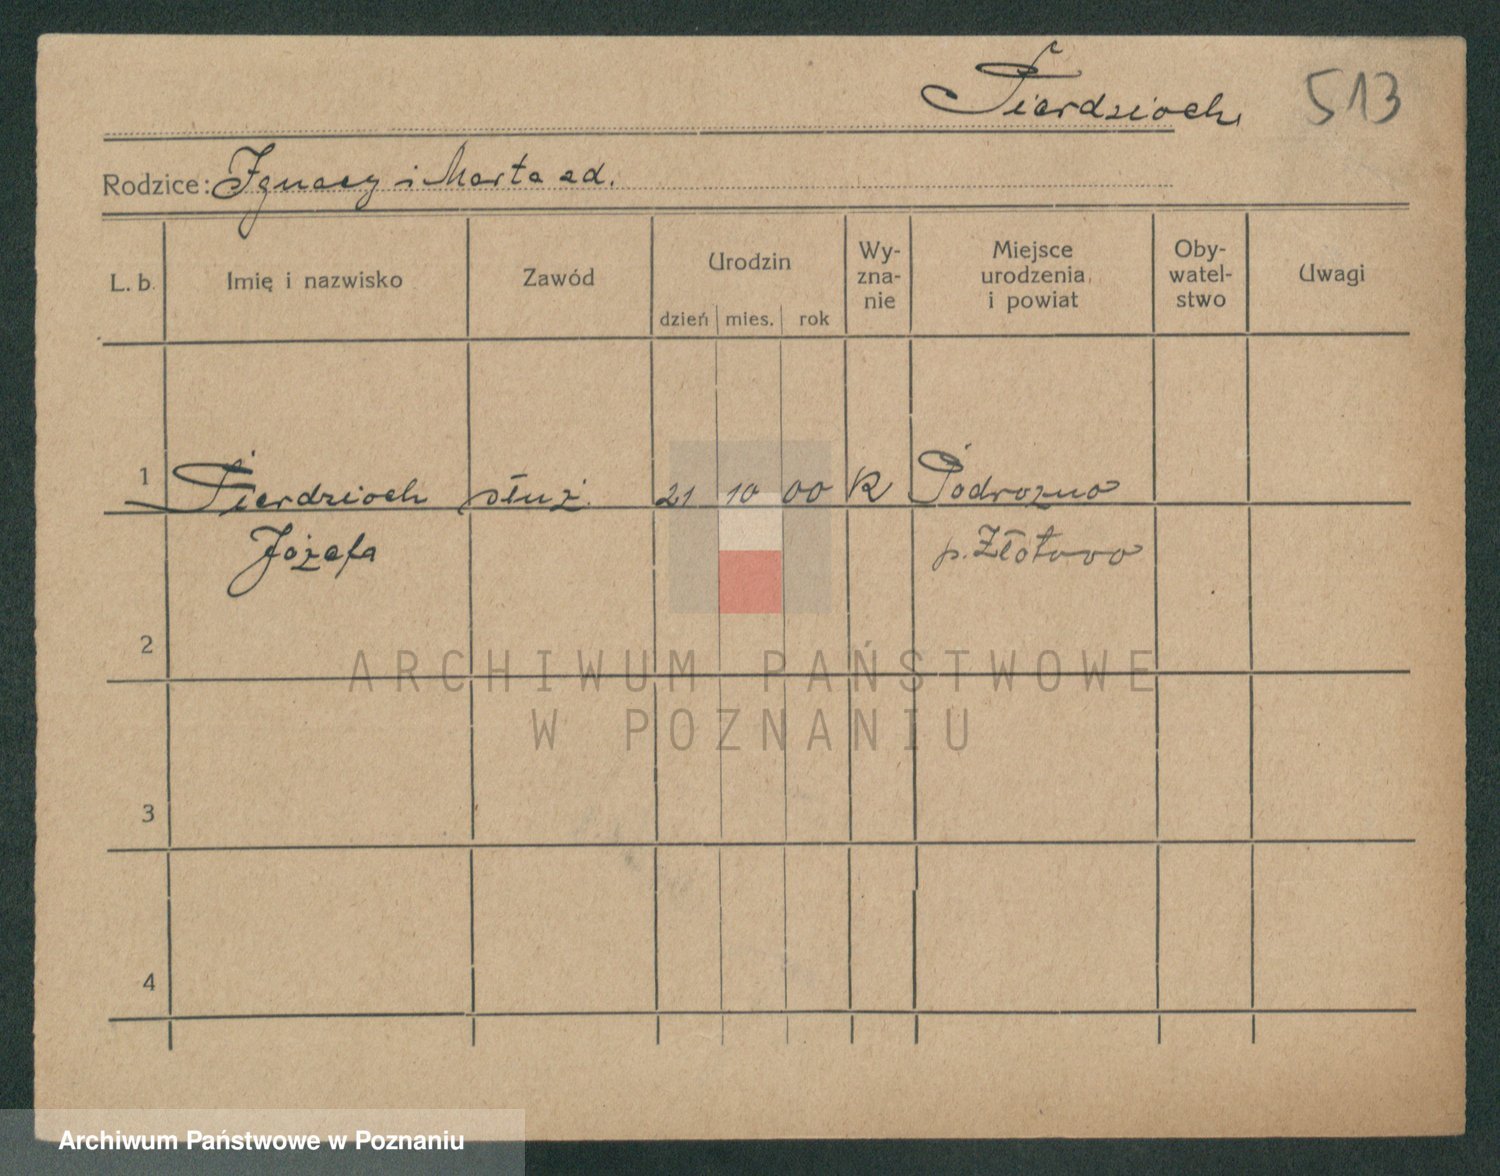 Śierdzioch
513
Rodzice: Ignacy i Marta zd.
L. b. Imię i nazwisko Zawód Urodzin dzień mies. rok Wy-zna-nie Miejsce urodzenia i powiat Oby-watel-stwo Uwagi
1 Śierdzioch służ. 21 10 00 R Podrożno
Józefa p. Złotowo
2
ARCHIWUM PAŃSTWOWE
W POZNANIU
3
4
Archiwum Państwowe w Poznaniu